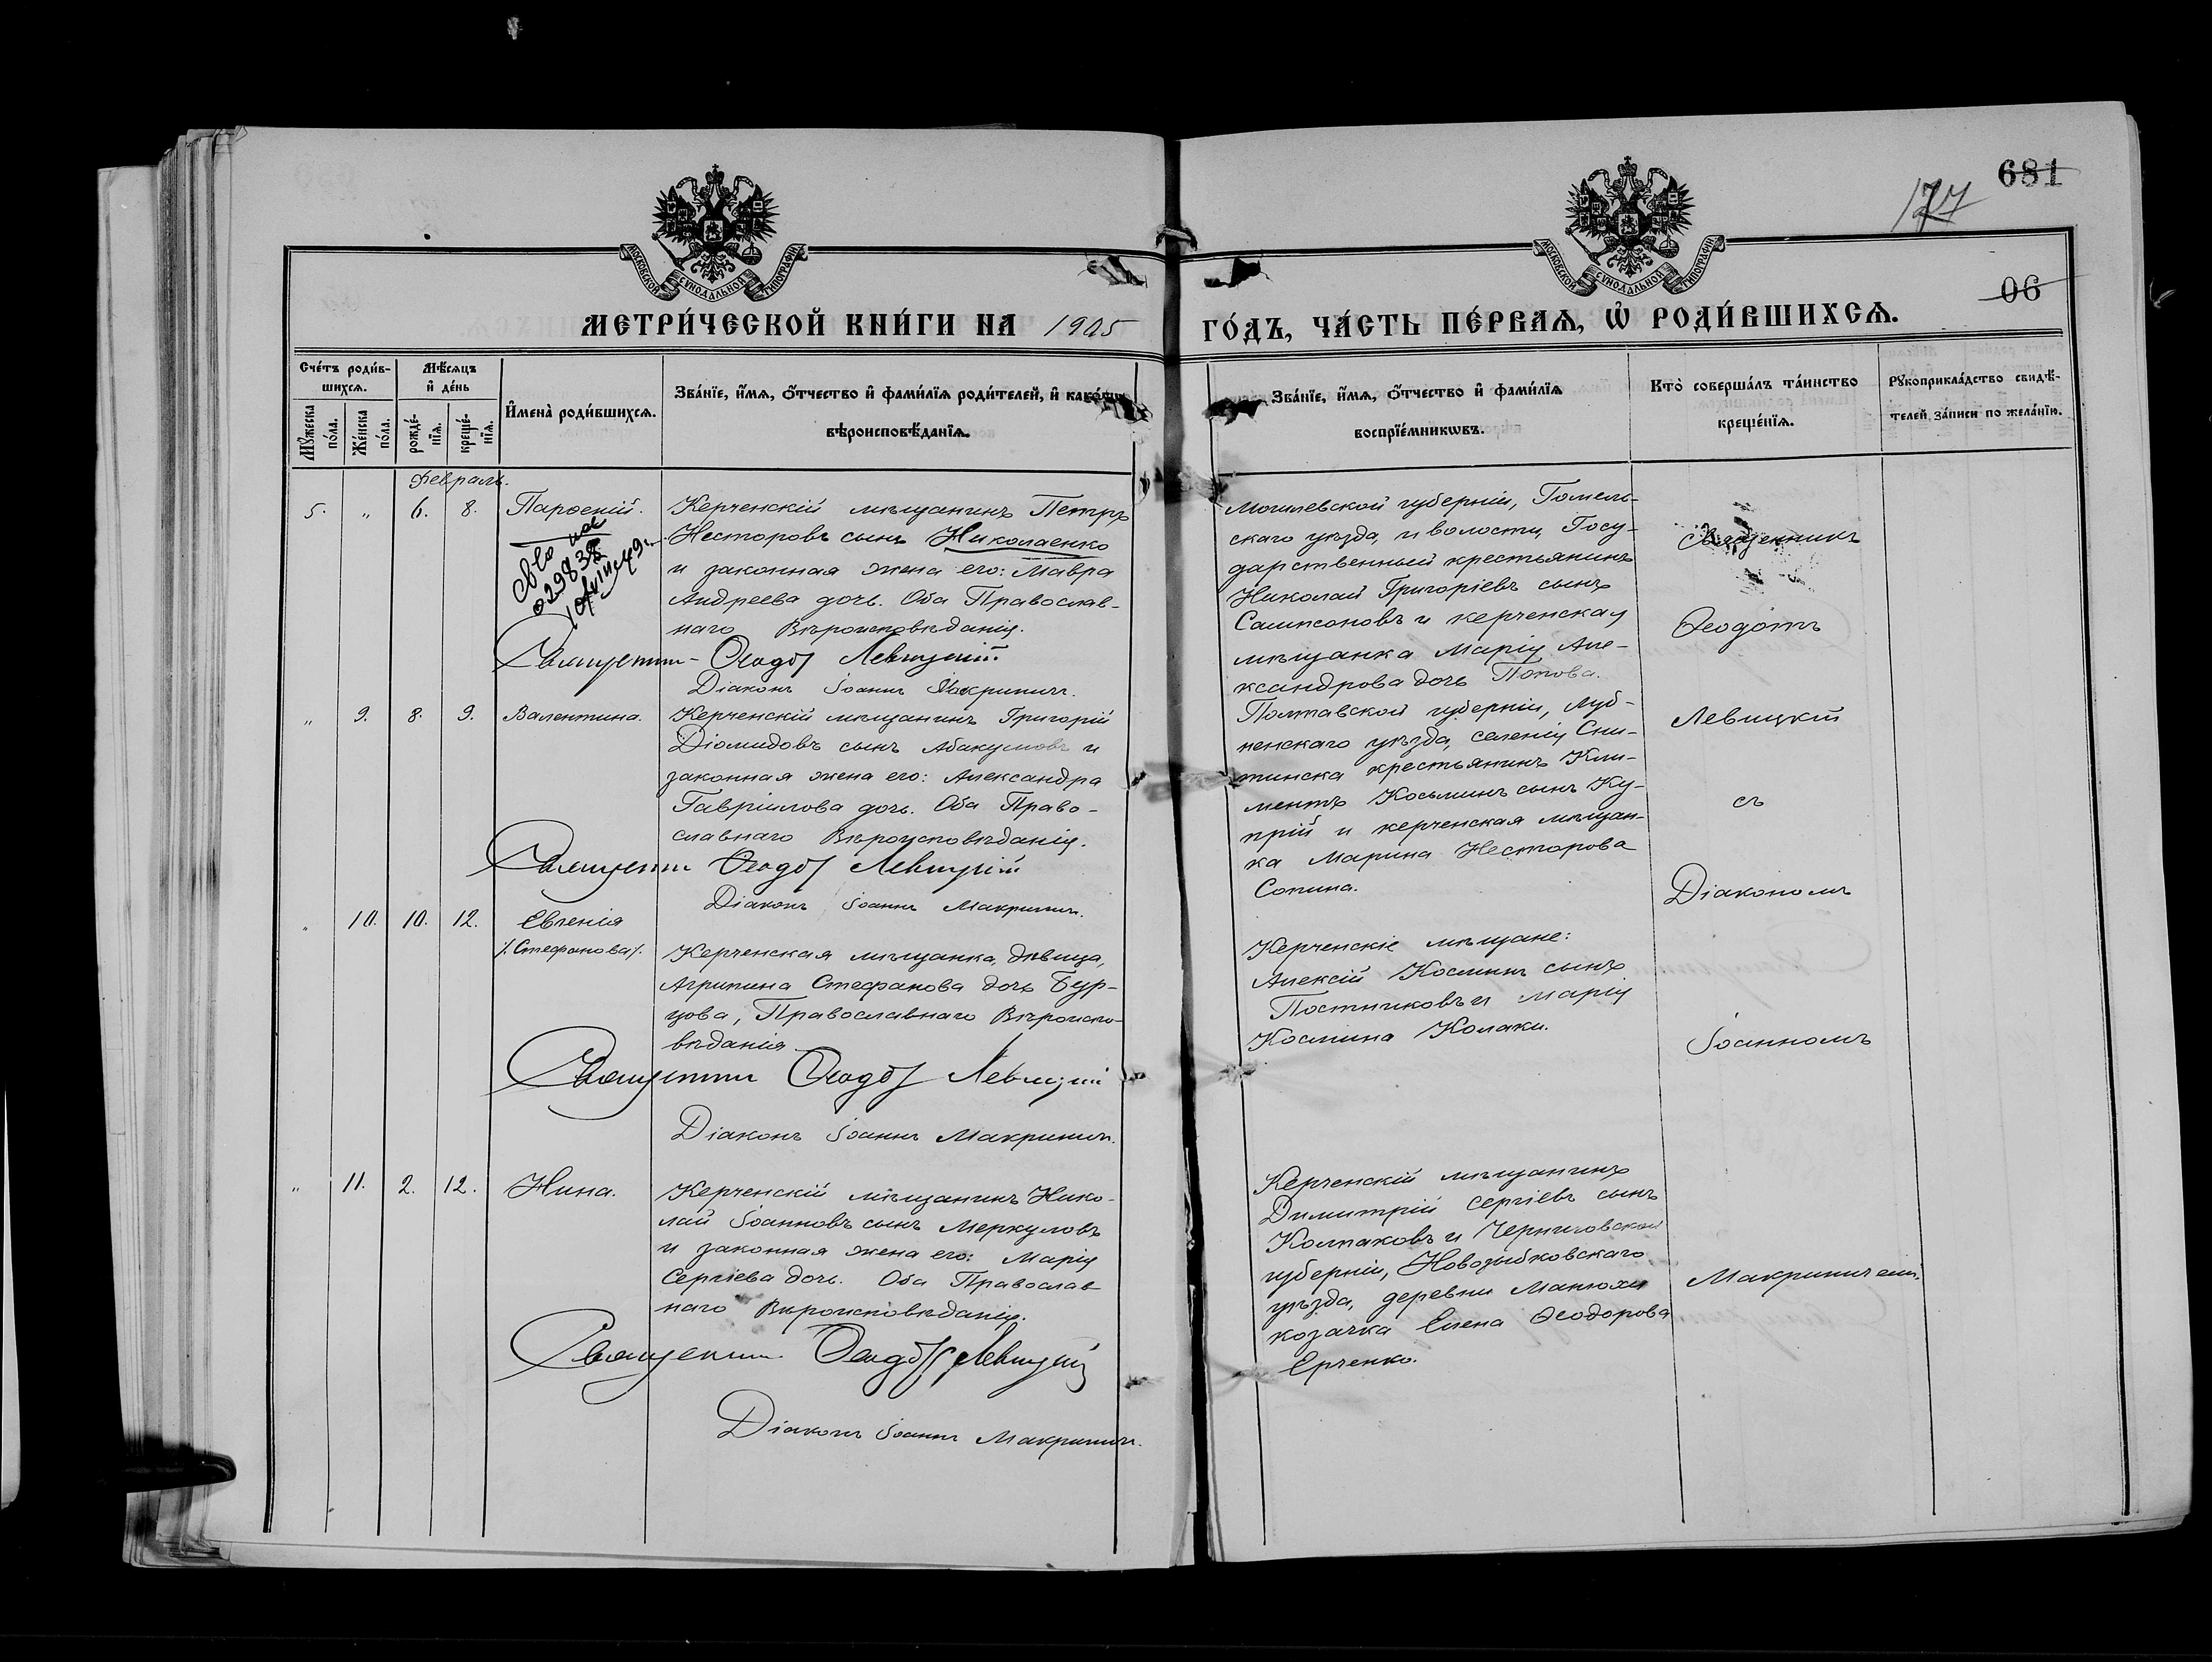 681
177
06
МОСКОВСКОЙ СѴНОДАЛЬНОЙ ТИПОГРАФІИ
МОСКОВСКОЙ СѴНОДАЛЬНОЙ ТИПОГРАФІИ
МЕТРИ́ЧЕСКОЙ КНИ́ГИ НА 1905
ГО́ДЪ, ЧА́СТЬ ПЕ́РВАѦ, Ѡ҆ РОДИ́ВШИХСѦ.
Сче́тъ роди́в-
шихсѧ.
Мꙋ́жеска по́ла.
Же́нска по́ла.
Мѣ́сѧцъ
и҆ де́нь
рожде́-
нїѧ.
креще́-
нїѧ.
И҆мена̀ роди́вшихсѧ.
Зва́нїе, и҆́мѧ, ѻ҆́тчество и҆ фами́лїѧ роди́телей, и҆ како́гѡ
вѣроисповѣ́данїѧ.
Зва́нїе, и҆́мѧ, ѻ҆́тчество и҆ фами́лїѧ
воспрїе́мникѡвъ.
Кто̀ соверша́лъ та́инство
креще́нїѧ.
Рꙋкоприкла́дство свидѣ́-
телей за́писи по жела́нїю.
Февраль.
5. „ 6. 8. Парѳеній.
Керченскій мѣщанинъ Петръ
Несторовъ сынъ Николаенко
и законная жена его: Мавра
Андреева дочь. Оба Православ-
наго Вѣроисповѣданія.
Священникъ Ѳеодотъ Левицкій
Діаконъ Іоаннъ Макриничъ.
Могилевской губерніи, Гомель-
скаго уѣзда, и волости, Госу-
дарственный крестьянинъ
Николай Григоріевъ сынъ
Сампсоновъ и керченская
мѣщанка Марія Але-
ксандрова дочь Попова.
„ 9. 8. 9. Валентина.
Керченскій мѣщанинъ Григорій
Діомидовъ сынъ Абакумовъ и
законная жена его: Александра
Гавріилова дочь. Оба Право-
славнаго Вѣроисповѣданія.
Священникъ Ѳеодотъ Левицкій
Діаконъ Іоаннъ Макриничъ.
Полтавской губерніи, Луб-
ненскаго уѣзда, селенія Сни-
тинска крестьянинъ Кли-
ментъ Косьминъ сынъ Ку-
прій и керченская мѣщан-
ка Марина Несторова
Сопина.
„ 10. 10. 12. Евгенія
/.Стефанова/.
Керченская мѣщанка, дѣвица,
Агрипина Стефанова дочь Бур-
цова, Православнаго Вѣроиспо-
вѣданія.
Священникъ Ѳеодотъ Левицкій
Діаконъ Іоаннъ Макриничъ.
Керченскіе мѣщане:
Алексій Косминъ сынъ
Постниковъ и Марія
Космина Колаки.
„ 11. 2. 12. Нина.
Керченскій мѣщанинъ Нико-
лай Іоанновъ сынъ Меркуловъ
и законная жена его: Марія
Сергіева дочь. Оба Православ
наго Вѣроисповѣданія.
Священникъ Ѳеодотъ Левицкій
Діаконъ Іоаннъ Макриничъ.
Керченскій мѣщанинъ
Димитрій Сергіевъ сынъ
Колпаковъ и Черниговской
губерніи, Новозыбковскаго
уѣзда, деревни Манюхи
козачка Елена Ѳеодорова
Ерченко.
Священникъ
Ѳеодотъ
Левицкій
съ
Діакономъ
Іоанномъ
Макриничемъ.